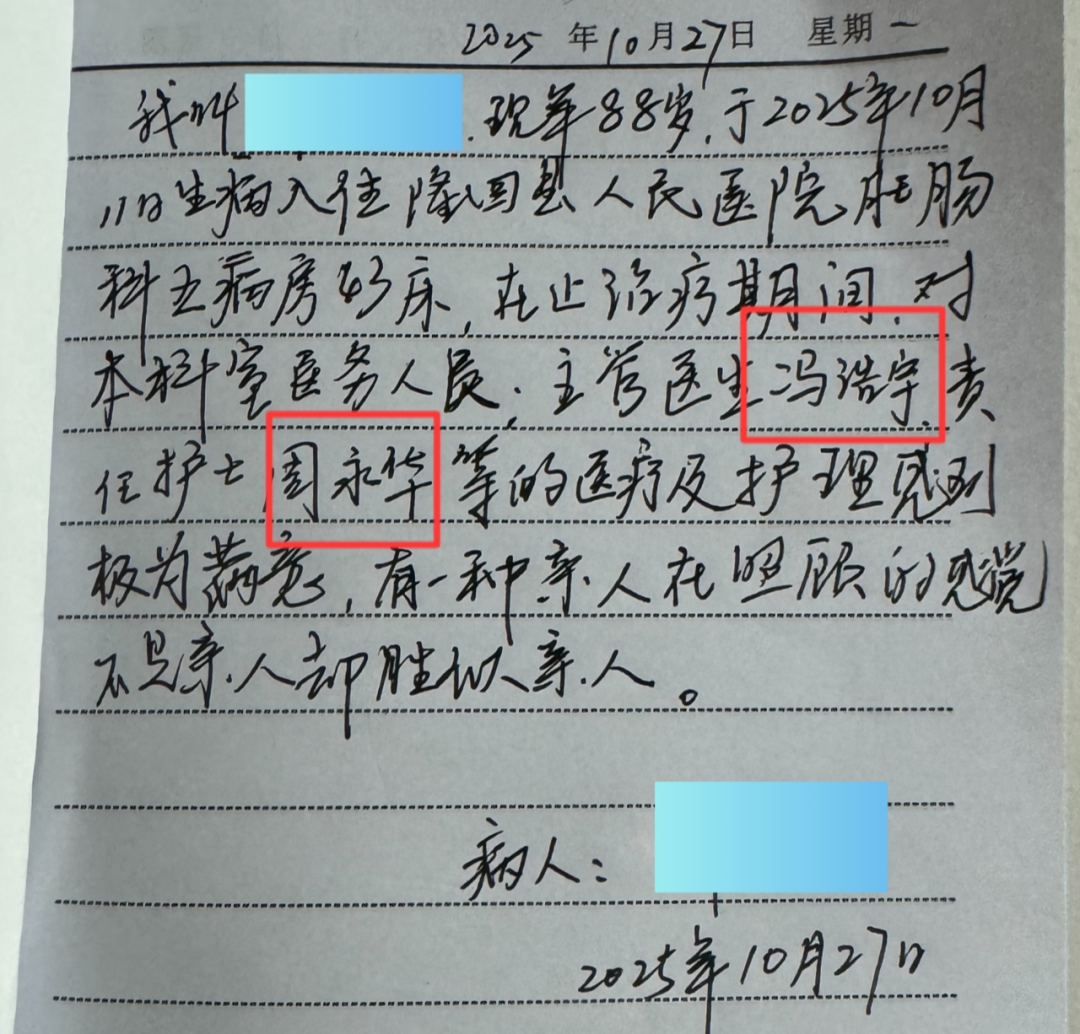 2025年10月27日 星期一
我叫 . 现年88岁, 于2025年10月
11日生病入住隆回县人民医院肛肠
科五病房43床, 在此治疗期间, 对
本科室医务人民, 主管医生冯浩宇, 责
任护士周永华等的医疗及护理感到
极为满意, 有一种亲人在照顾的感觉
不是亲人却胜似亲人。
病人:
2025年10月27日